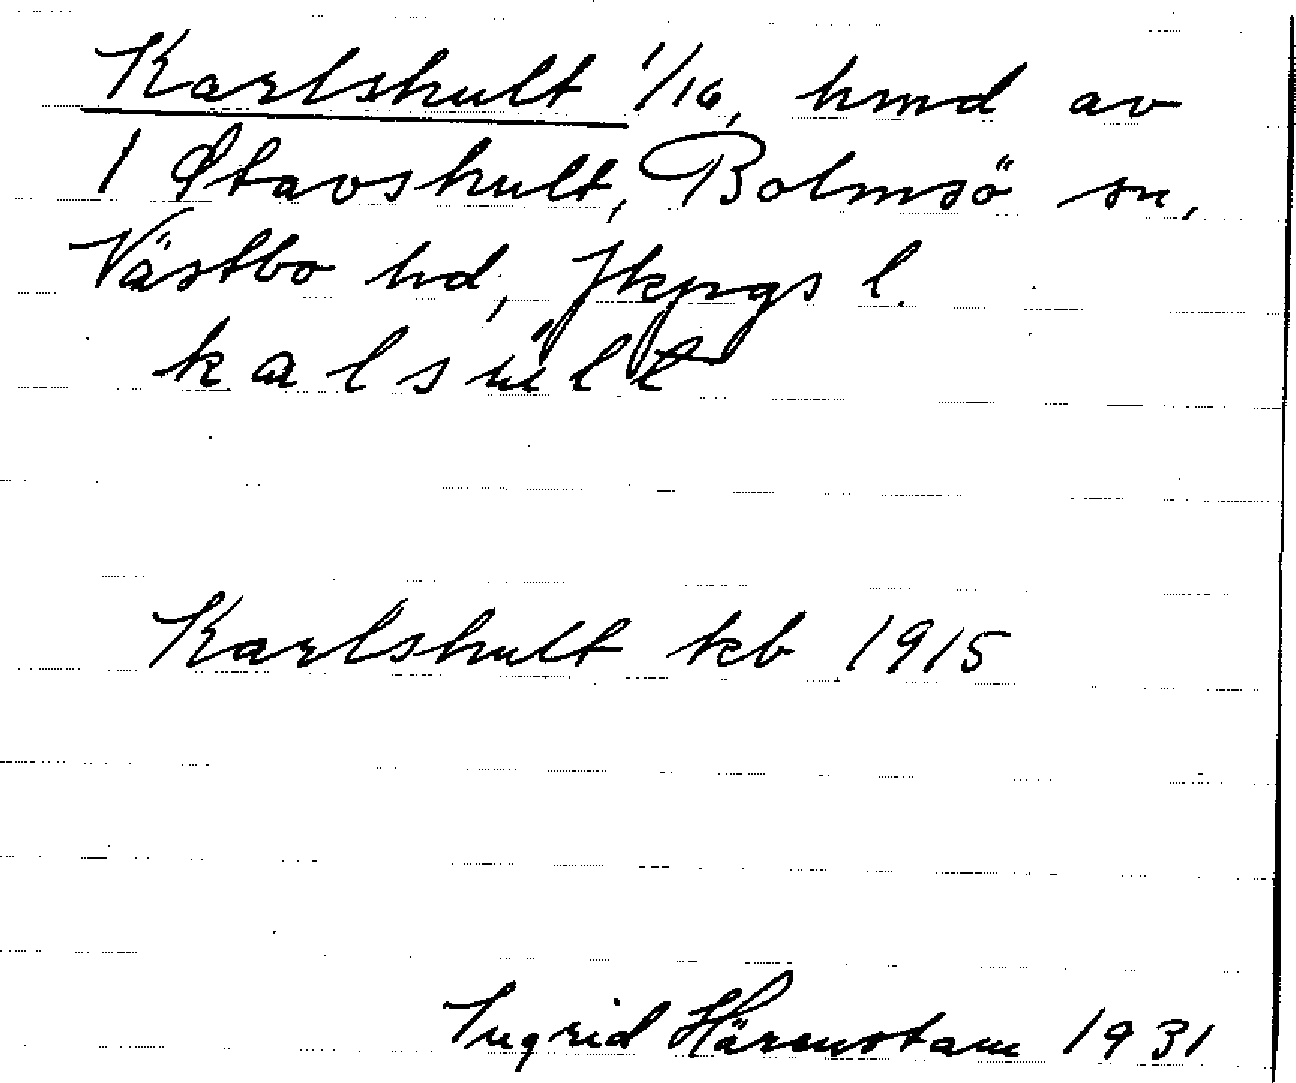 Karlshult 1/16, hmd av
1 Stavshult, Bolmsö sn,
Västbo hd, Jkpgs l.
kalsült
Karlshult kb 1915
Ingrid Härenstam 1931